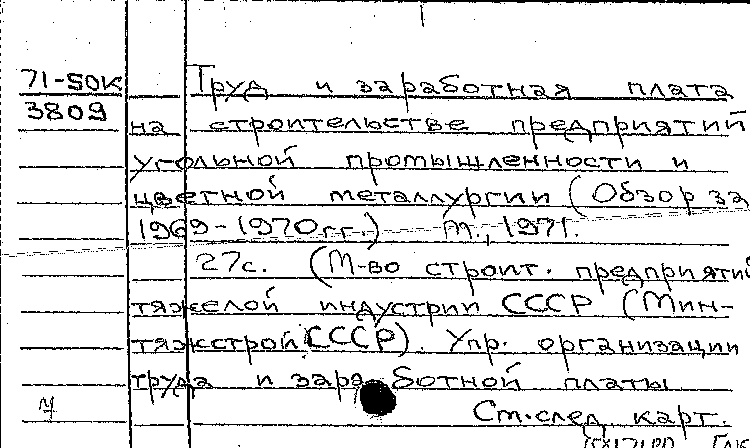 71-50К Труд и заработная плата
3809
на строительстве предприятий
угольной промышленности и
цветной металлургии (Обзор за
1969-1970гг.) М., 1971.
27с. (М-во строит. предприятий
тяжелой индустрии СССР (Мин-
тяжстрой СССР). Упр. организации
труда и заработной платы
См. след. карт.